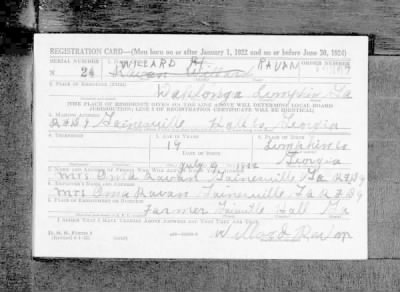 WILLARD H. RAVAN
REGISTRATION CARD—(Men born on or after January 1, 1922 and on or before June 30, 1924)
SERIAL NUMBER
ORDER NUMBER
N 24 Ravan Willard
2. PLACE OF RESIDENCE (Print)
Dahlonega Lumpkin Ga
[THE PLACE OF RESIDENCE GIVEN ON THE LINE ABOVE WILL DETERMINE LOCAL BOARD
JURISDICTION; LINE 2 OF REGISTRATION CERTIFICATE WILL BE IDENTICAL]
3. MAILING ADDRESS
Gainesville Hall Co Georgia
4. TELEPHONE
5. AGE IN YEARS
6. PLACE OF BIRTH
19
Lumpkin Co
DATE OF BIRTH
July
Georgia
7. NAME AND ADDRESS OF PERSON WHO WILL ALWAYS KNOW YOUR ADDRESS
Mrs Oma Ravan Gainesville Ga R F D 9
8. EMPLOYER'S NAME AND ADDRESS
Mrs Oma Ravan Gainesville Ga R F D 9
9. PLACE OF EMPLOYMENT OR BUSINESS
Farmer Hall Ga
I AFFIRM THAT I HAVE VERIFIED ABOVE ANSWERS AND THAT THEY ARE TRUE.
D. S. S. FORM 1
Willard Ravan